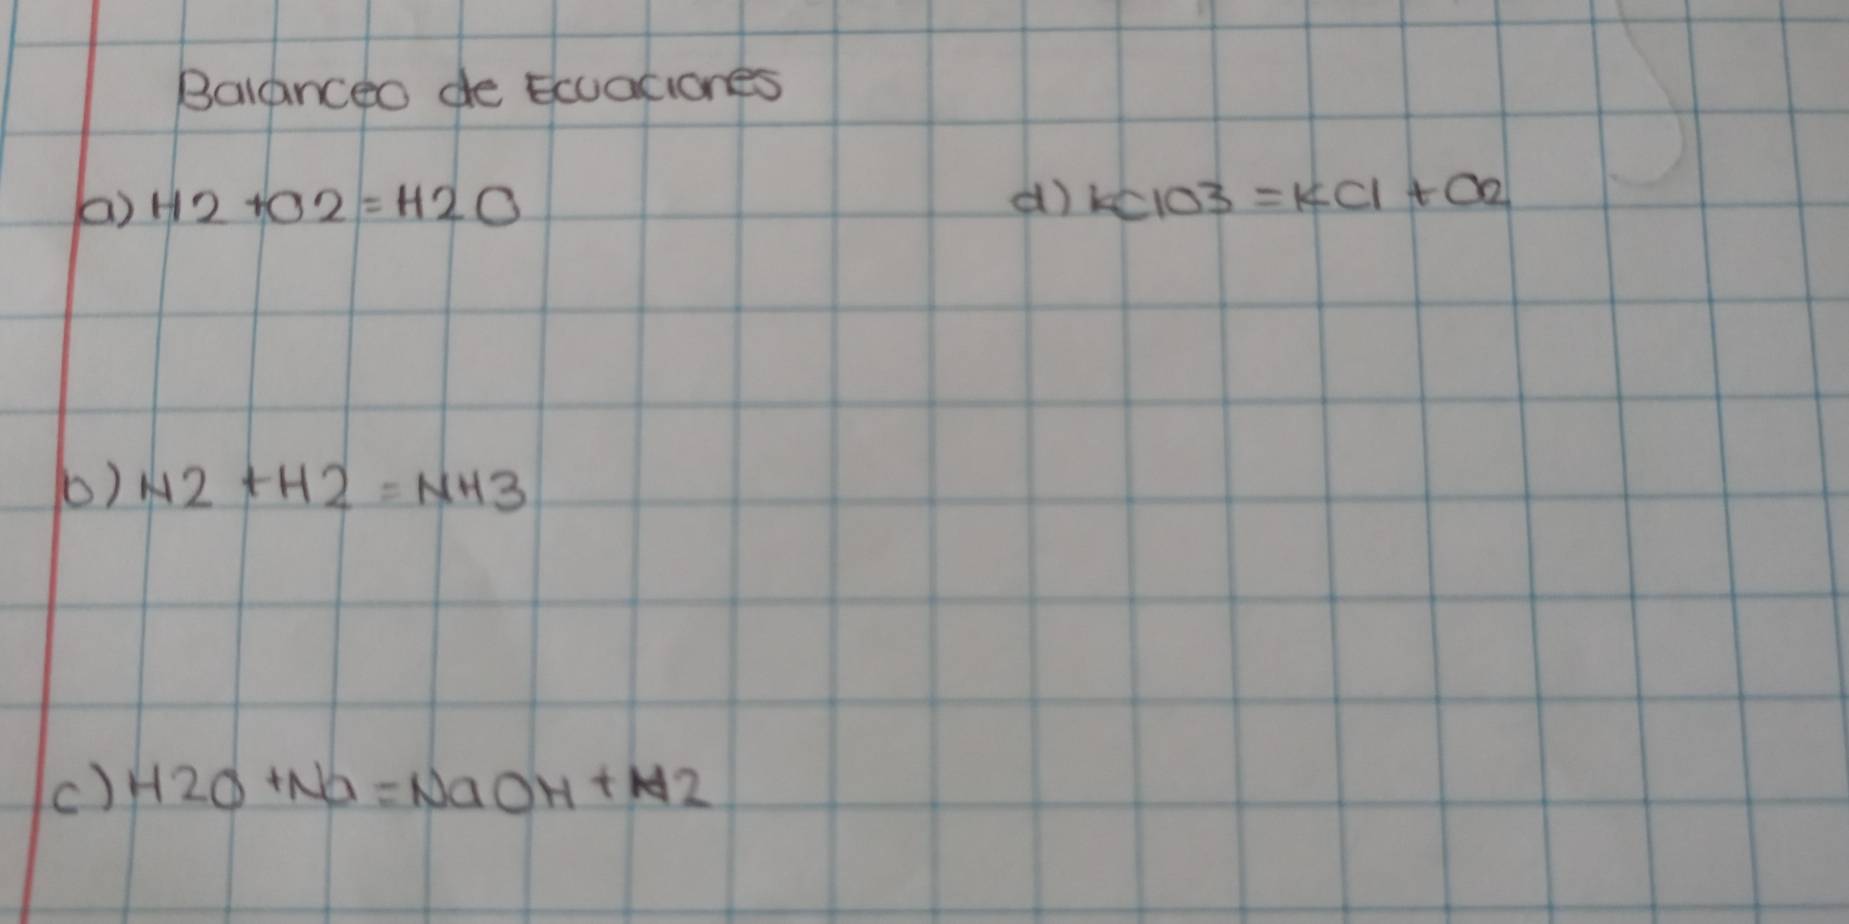 Balanceo de Ecuaciones
a) H2 + O2 = H2O
d) KClO3 = KCl + O2
b) N2 + H2 = NH3
c) H2O + Na = NaOH + H2